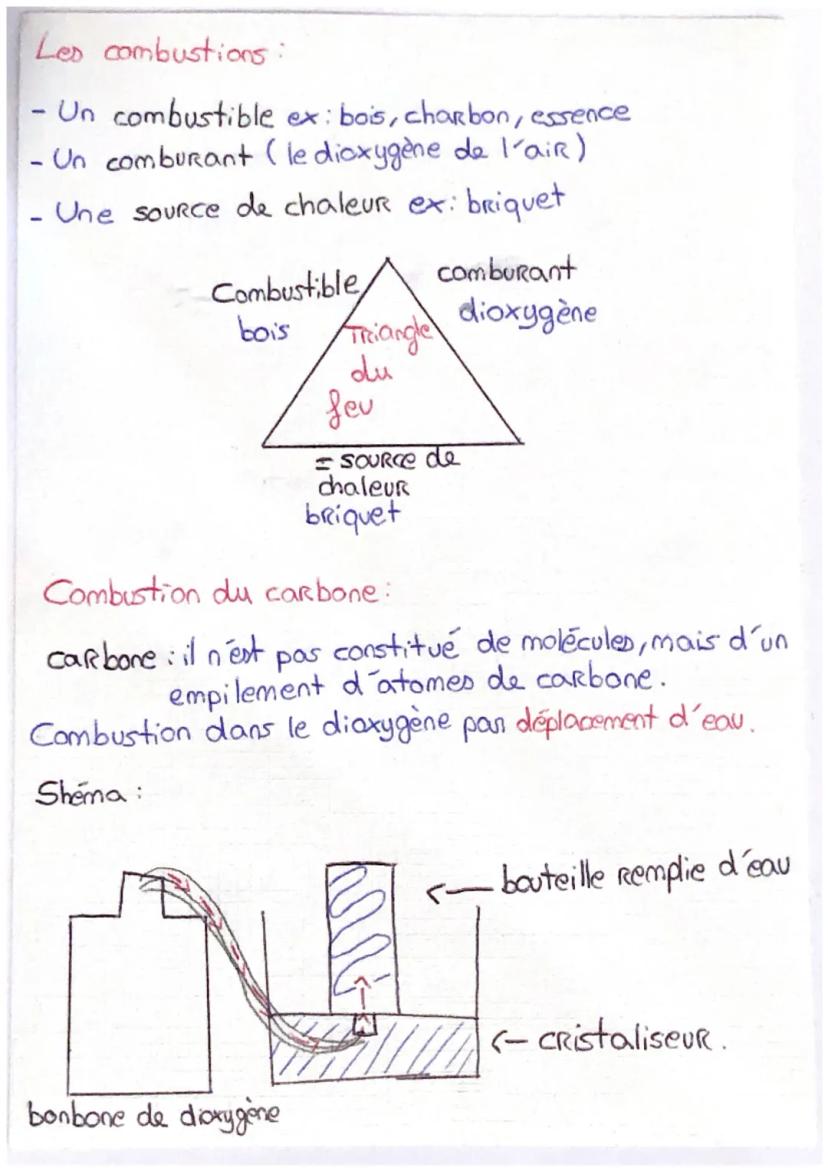 Les combustions :
- Un combustible ex: bois, charbon, essence
- Un comburant ( le dioxygène de l'air)
- Une source de chaleur ex: briquet
Combustible
bois
comburant
dioxygène
Triangle
du
feu
= source de
chaleur
briquet
Combustion du carbone :
carbone : il n'est pas constitué de molécules, mais d'un
empilement d'atomes de carbone.
Combustion dans le dioxygène par déplacement d'eau.
Shéma :
bouteille remplie d'eau
cristaliseur.
bonbone de dioxygène